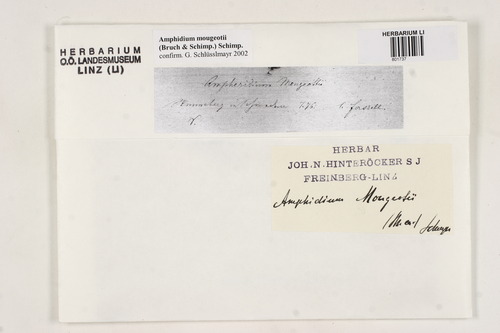 HERBARIUM
O.Ö. LANDESMUSEUM
LINZ (LI)
Amphidium mougeotii
(Bruch & Schimp.) Schimp.
confirm. G. Schlüsslmayr 2002
HERBARIUM LI
801737
Amphidium Mougeotii
HERBAR
JOH. N. HINTERÖCKER S J
FREINBERG-LINZ
Amphidium Mougeotii
Schimp